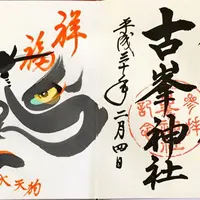 古峯神社
平成三十年二月四日
祥福
天狗